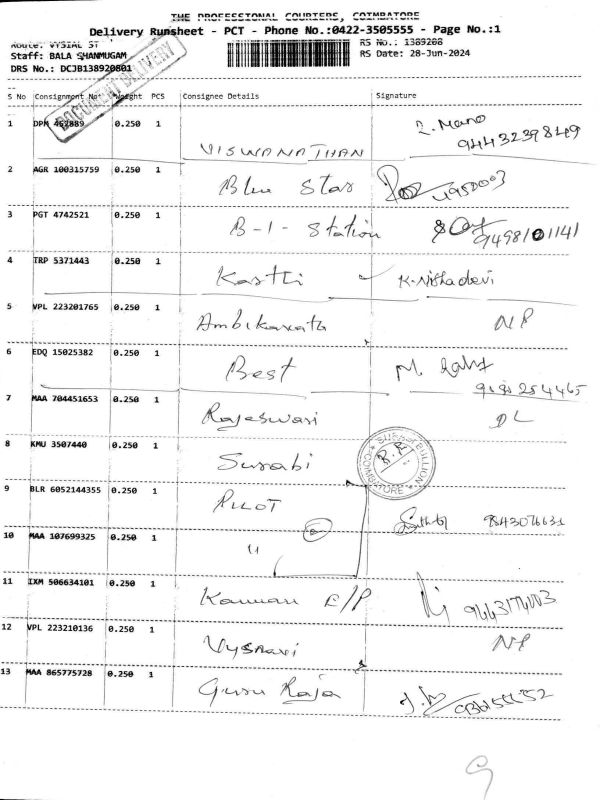 THE PROFESSIONAL COURIERS, COIMBATORE
Delivery Runsheet - PCT - Phone No.:0422-3505555 - Page No.:1
Route: VYSIAL ST
RS No.: 1389208
Staff: BALA SHANMUGAM
RS Date: 28-Jun-2024
DRS No.: DCJB138920801
DOCUMENT DELIVERY
S No Consignment No Weight PCS Consignee Details Signature
1 DPM 462889 0.250 1 VISWANATHAN R. Mano
9443239849
2 AGR 100315759 0.250 1 Blue Star
3 PGT 4742521 0.250 1 B-1- Station
4 TRP 5371443 0.250 1 Kasthi K. Nishadevi
5 VPL 223201765 0.250 1 NP
6 EDQ 15025382 0.250 1 Best
7 MAA 704451653 0.250 1 Rajeswari DL
8 KMU 3507440 0.250 1 Surabi
BULLION
COIMBATORE
9 BLR 6052144355 0.250 1 PILOT
10 MAA 107699325 0.250 1 "
11 IXM 506634101 0.250 1 Kannan E/P
12 VPL 223210136 0.250 1 Vysnavi NP
13 MAA 865775728 0.250 1 Guru Raja
9